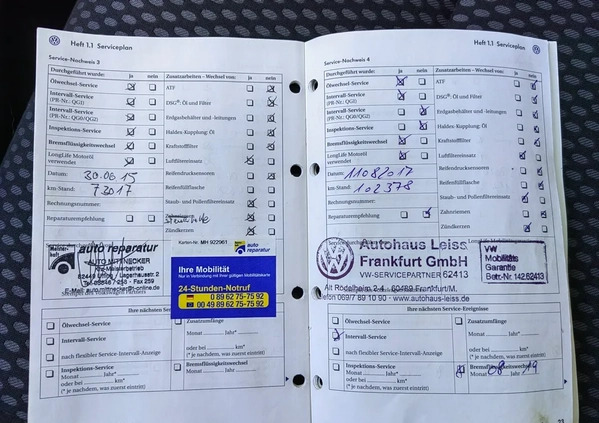 Heft 1.1 Serviceplan
Service-Nachweis 3
Durchgeführt wurde: ja nein
Ölwechsel-Service
Intervall-Service
(PR-Nr.: QGI)
Intervall-Service
(PR-Nr.: QG0/QG2)
Inspektions-Service
Bremsflüssigkeitswechsel
LongLife Motoröl
verwendet
Datum: 30.06.15
km-Stand: 73017
Rechnungsnummer:
Reparaturempfehlung
Zusatzarbeiten - Wechsel von: ja nein
ATF
DSG®: Öl und Filter
Erdgasbehälter und -leitungen
Haldex-Kupplung: Öl
Kraftstofffilter
Luftfiltereinsatz
Reifendrucksensoren
Reifenfüllflasche
Staub- und Pollenfiltereinsatz
Zahnriemen
Zündkerzen
auto reparatur
AUTO MITTNECKER
Kfz-Meisterbetrieb
E-Mail: auto.mittnecker@t-online.de
Stempel des Volkswagen Partners
Karten-Nr. MH 922961
auto
reparatur
Ihre Mobilität
Nur in Verbindung mit Ihrer gültigen Mobilitätskarte
24-Stunden-Notruf
0 89 62 75-75 92
00 49 89 62 75-75 92
Ihre nächsten Service-Ereignisse
Ölwechsel-Service
Intervall-Service
nach flexibler Service-Intervall-Anzeige
Inspektions-Service
Monat Jahr*
oder bei km*
(* je nachdem, was zuerst eintritt)
Zusatzumfänge
Monat Jahr*
oder bei km*
(* je nachdem, was zuerst eintritt)
Bremsflüssigkeitswechsel
Monat Jahr
Heft 1.1 Serviceplan
Service-Nachweis 4
Durchgeführt wurde: ja nein
Ölwechsel-Service
Intervall-Service
(PR-Nr.: QGI)
Intervall-Service
(PR-Nr.: QG0/QG2)
Inspektions-Service
Bremsflüssigkeitswechsel
LongLife Motoröl
verwendet
Datum: 11082017
km-Stand: 102378
Rechnungsnummer:
Reparaturempfehlung
Zusatzarbeiten - Wechsel von: ja nein
ATF
DSG®: Öl und Filter
Erdgasbehälter und -leitungen
Haldex-Kupplung: Öl
Kraftstofffilter
Luftfiltereinsatz
Reifendrucksensoren
Reifenfüllflasche
Staub- und Pollenfiltereinsatz
Zahnriemen
Zündkerzen
Autohaus Leiss
Frankfurt GmbH
VW-SERVICEPARTNER 62413
Alt Rödelheim 2-4 · 60489 Frankfurt/M.
Telefon 069/7 89 10 90 - www.autohaus-leiss.de
VW
Mobilitäts
Garantie
Betr.-Nr. 142 62413
Ihre nächsten Service-Ereignisse
Ölwechsel-Service
Intervall-Service
nach flexibler Service-Intervall-Anzeige
Inspektions-Service
Monat Jahr*
oder bei km*
(* je nachdem, was zuerst eintritt)
Zusatzumfänge
Monat Jahr*
oder bei km*
(* je nachdem, was zuerst eintritt)
Bremsflüssigkeitswechsel
Monat 08 Jahr 19
23